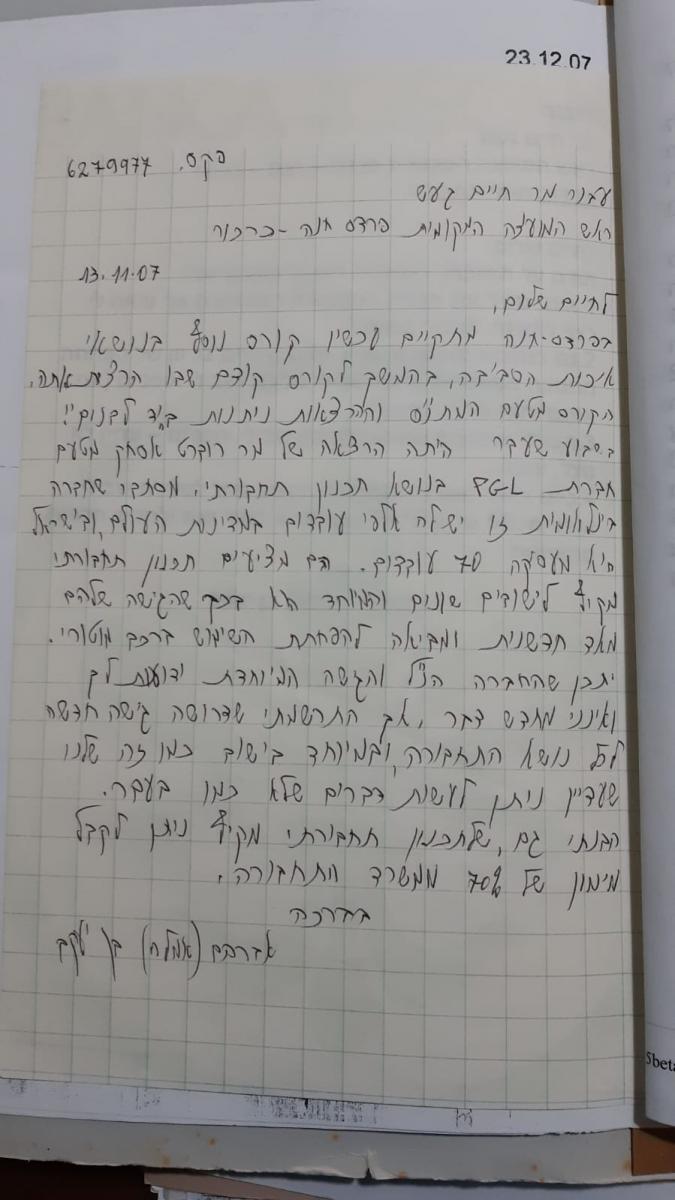 23.12.07
פקס. 6279977
עבור מר חיים געש
ראש המועצה המקומית פרדס חנה-כרכור
13.11.07
לחיים שלום,
בפרדס-חנה מתקיים עכשיו קורס נוסף בנושאי
איכות הסביבה, בהמשך לקורס קודם שבו הרצית אתה.
הקורס מטעם המתנ"ס וההרצאות ניתנות ב"יד לבנים"!
בשבוע שעבר היתה הרצאה של מר רוברט אסחק מטעם
חברת PGL בנושא תכנון תחבורתי. מסתבר שחברה
בינלאומית זו יש לה אלפי עובדים במדינות העולם, ובישראל
היא מעסקה 70 עובדים. הם מציעים תכנון תחבורתי
מקיף לישובים שונים והמיוחד הוא בכך שהגישה שלהם
מאד חדשנית ומביאה להפחתת השימוש ברכב מוטורי.
יתכן שהחברה הנ"ל והגשה המיוחדת ידועות לך
ואינני מחדש דבר, אך התרשמתי שדרושה גישה חדשה
לכל נושא התחבורה, ובמיוחד בישוב כמו זה שלנו
שעדיין ניתן לעשות דברים שלא כמו בעבר.
הבנתי גם, שלתכנון תחבורתי מקיף ניתן לקבל
מימון של 70% ממשרד התחבורה.
בברכה
אברהם (אמל'ה) בן יעקב
Sbeta